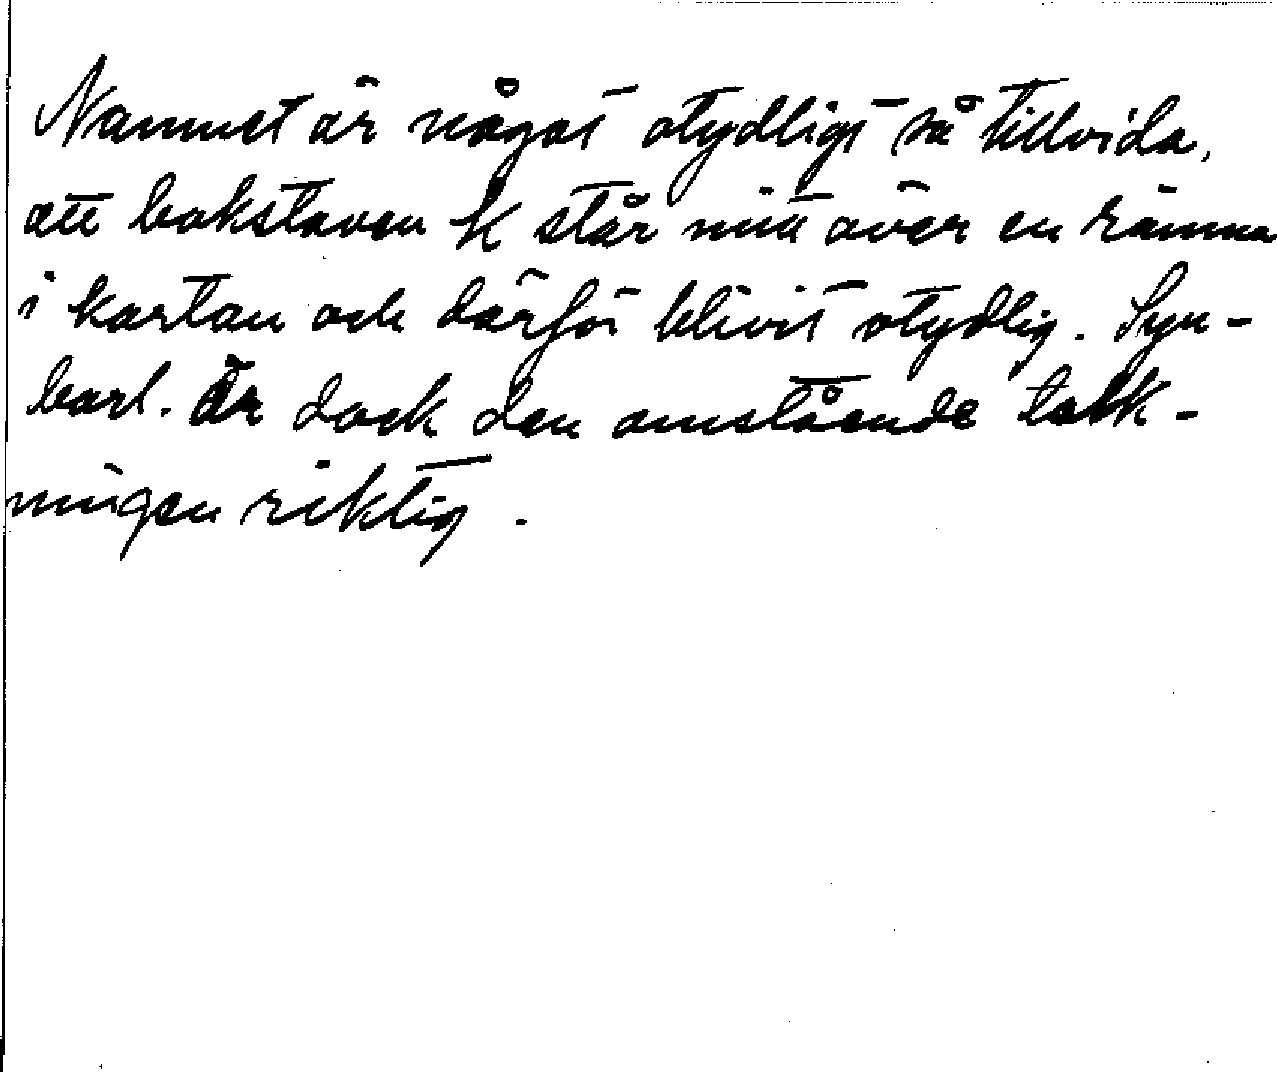 Namnet är något otydligt så tillvida,
att bokstaven k står mitt över en rämna
i kartan och därför blivit otydlig. Syn-
barl. är dock den omstående tolk-
ningen riktig.